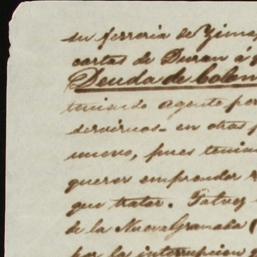 su ferreria de Zima
cartas de Duran á
Deuda de Colom
teniendo agente por
servirnos en otras p
nuevo, pues tenien
querer emprender
que tratar. Talvez
de la Nueva Granada (
por la interrupcion